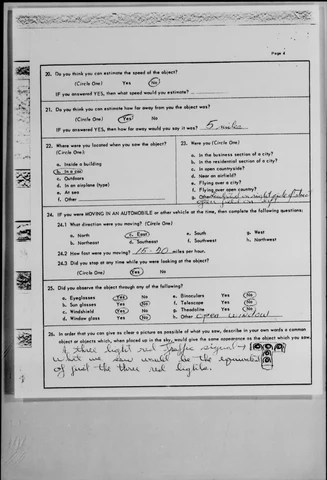 Page 4
20. Do you think you can estimate the speed of the object?
(Circle One) Yes No
IF you answered YES, then what speed would you estimate?
21. Do you think you can estimate how far away from you the object was?
(Circle One) Yes No
IF you answered YES, then how far away would you say it was? 5 miles
22. Where were you located when you saw the object?
(Circle One):
a. Inside a building
b. In a car
c. Outdoors
d. In an airplane (type)
e. At sea
f. Other
23. Were you (Circle One)
a. In the business section of a city?
b. In the residential section of a city?
c. In open countryside?
d. Near an airfield?
e. Flying over a city?
f. Flying over open country?
g. Other
24. IF you were MOVING IN AN AUTOMOBILE or other vehicle at the time, then complete the following questions:
24.1 What direction were you moving? (Circle One)
a. North c. East e. South g. West
b. Northeast d. Southeast f. Southwest h. Northwest
24.2 How fast were you moving? 15-20 miles per hour.
24.3 Did you stop at any time while you were looking at the object?
(Circle One) Yes No
25. Did you observe the object through any of the following?
a. Eyeglasses Yes No e. Binoculars Yes No
b. Sun glasses Yes No f. Telescope Yes No
c. Windshield Yes No g. Theodolite Yes No
d. Window glass Yes No h. Other open window
26. In order that you can give as clear a picture as possible of what you saw, describe in your own words a common
object or objects which, when placed up in the sky, would give the same appearance as the object which you saw.
A three light red Traffic signal
What we saw would be the equivalent
of just the three red lights.